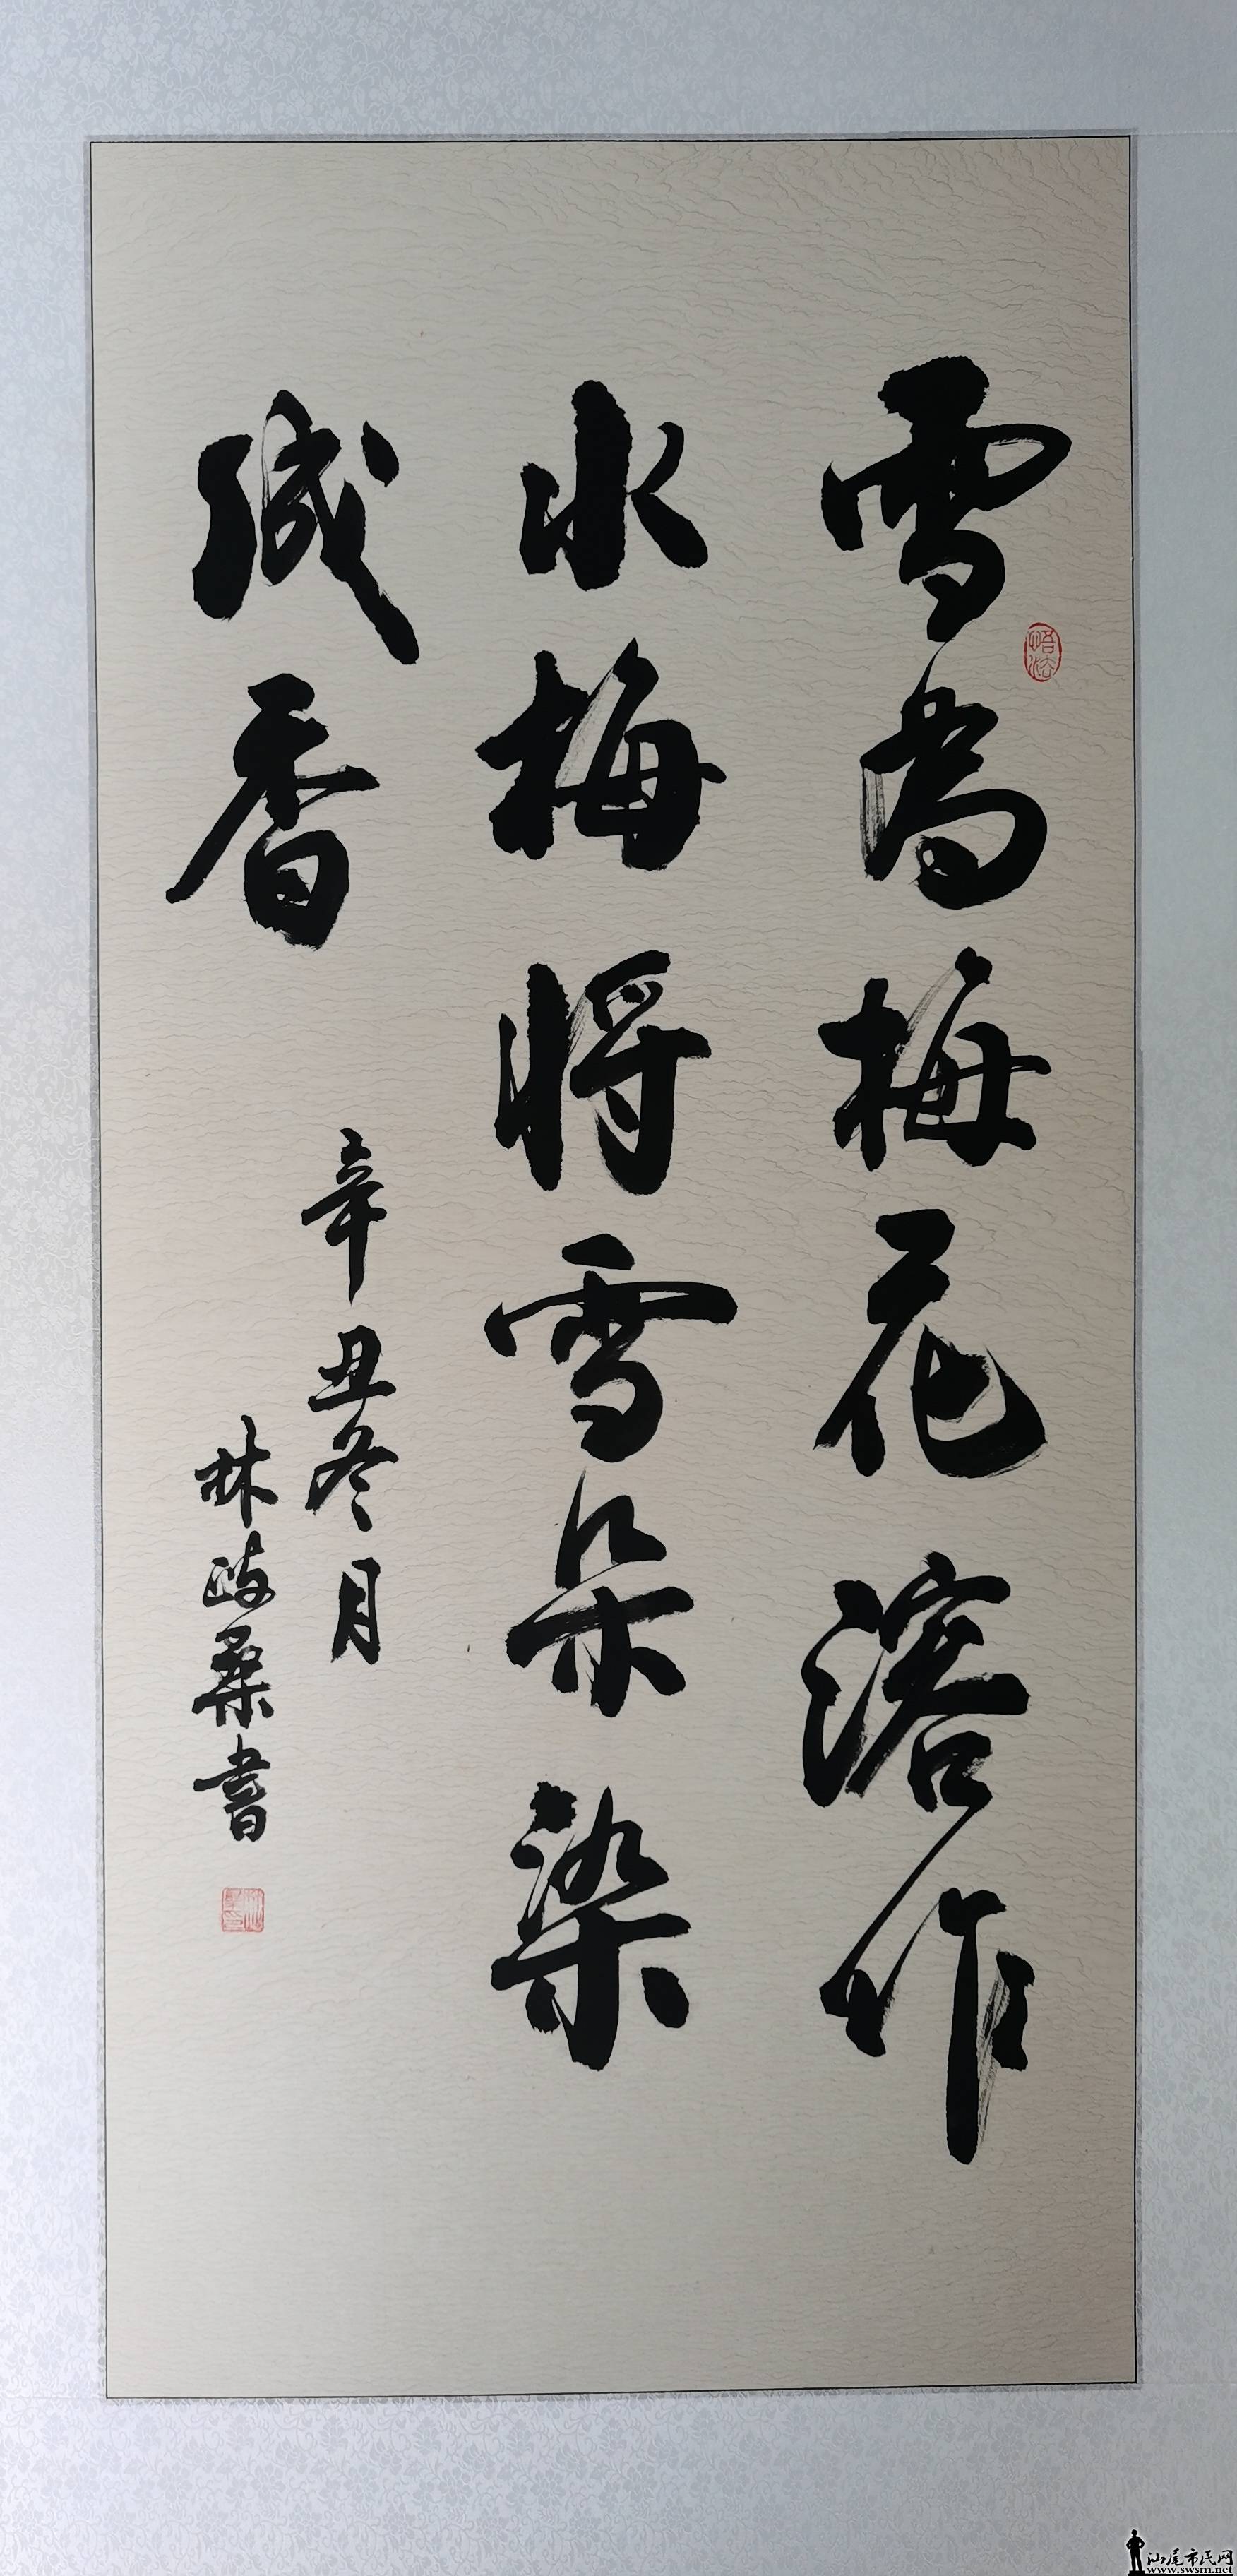 雪為梅花溶作
水梅将雪朵染
成香
辛丑冬月
林
書
汕尾市民网
www.swsm.net